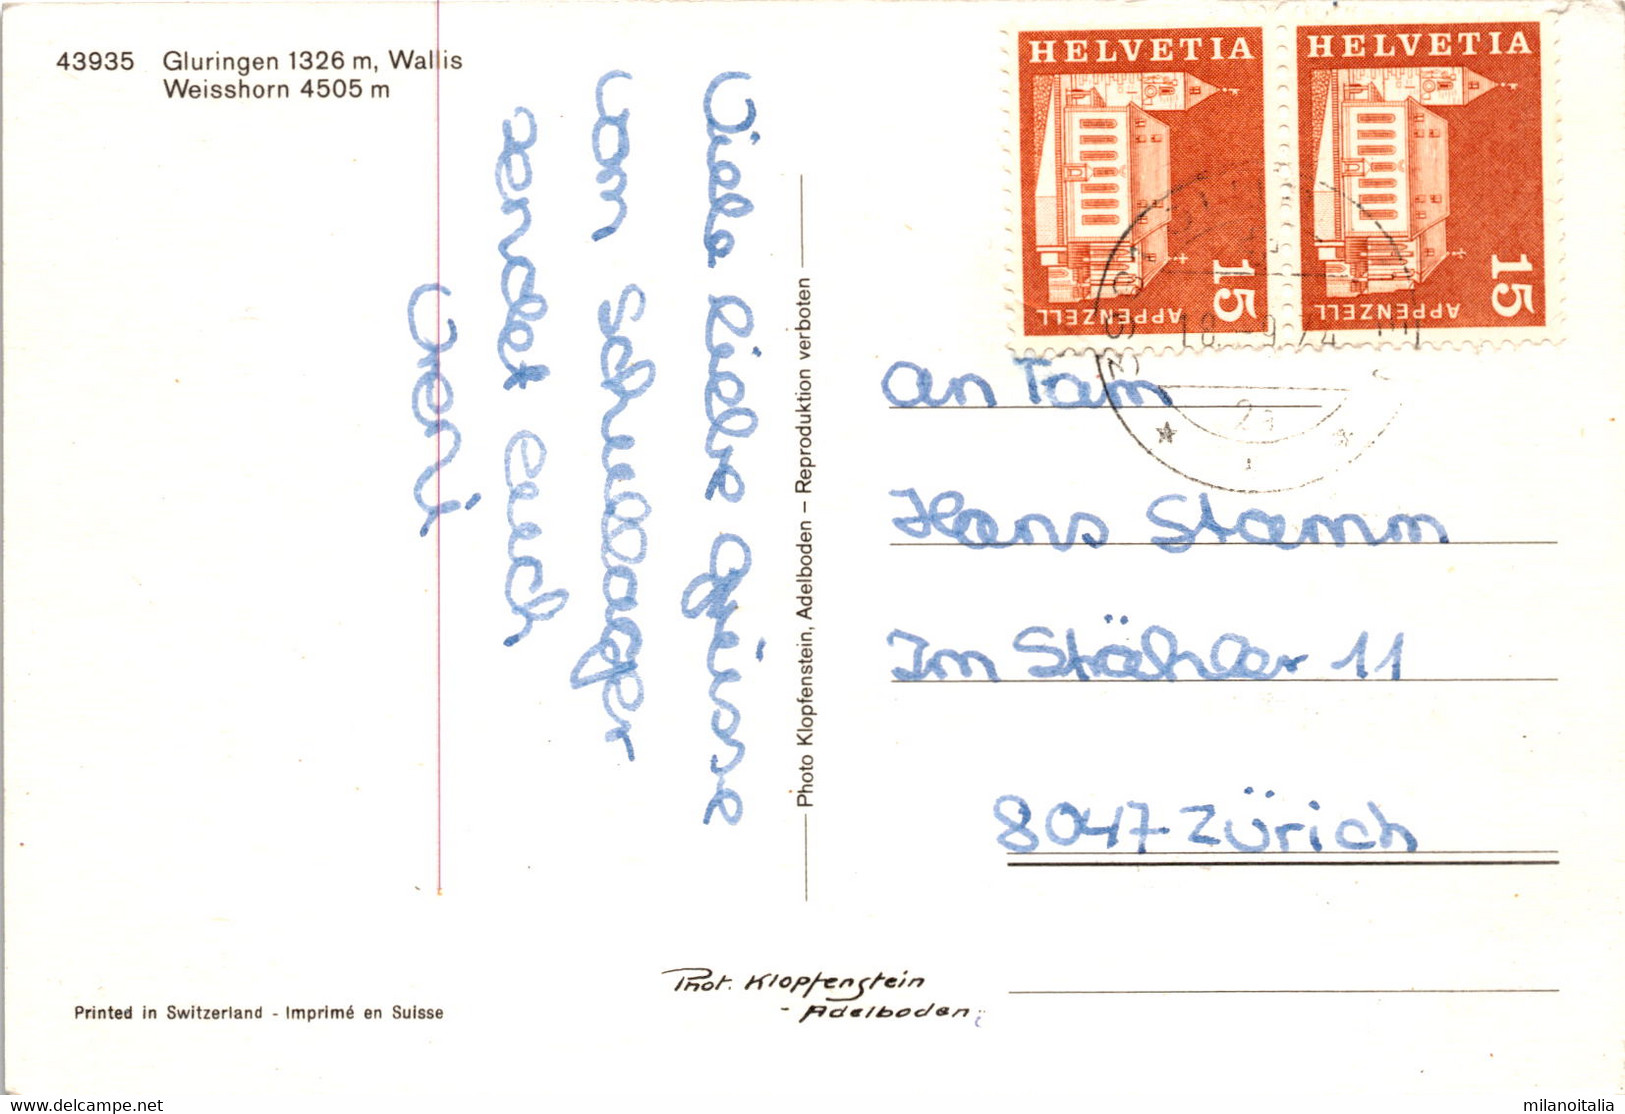 43935 Gluringen 1326 m, Wallis
Weisshorn 4505 m
Viele liebe Grüsse
vom Schullager
sendet euch
Vreni
Photo Klopfenstein, Adelboden – Reproduktion verboten
HELVETIA
15
APPENZELL
HELVETIA
15
APPENZELL
18.-9.74
an Fam
Hans Stamm
Im Stähler 11
8047 Zürich
Phot. Klopfenstein
- Adelboden
Printed in Switzerland - Imprimé en Suisse
www.delcampe.net
milanoitalia